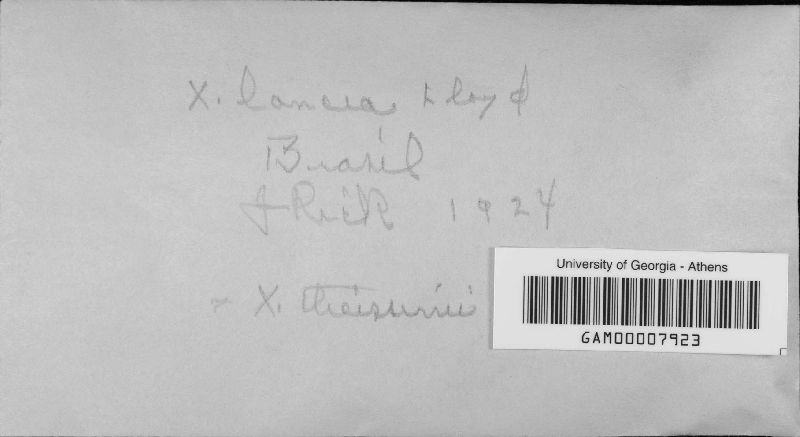 X. lancea Lloyd
Brasil
J Rick 1924
= X. theissenii
University of Georgia - Athens
GAM00007923